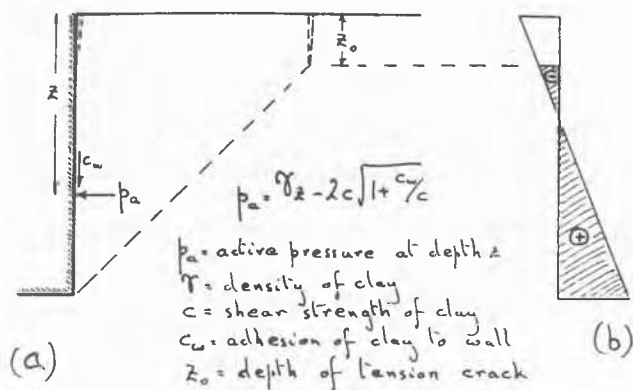 z₀
z
c_w
pₐ
pₐ = γz - 2c√(1 + c_w/c)
pₐ = active pressure at depth z
γ = density of clay
c = shear strength of clay
c_w = adhesion of clay to wall
z₀ = depth of tension crack
(a)
(b)
⊖
⊕